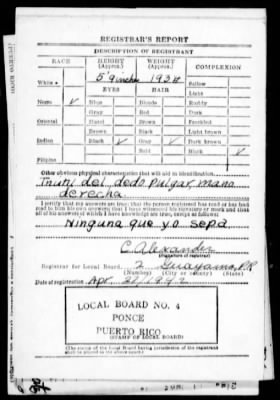 REGISTRAR'S REPORT
DESCRIPTION OF REGISTRANT
RACE HEIGHT (Approx.) WEIGHT (Approx.) COMPLEXION
White 5' 9 inches 193 Sallow
EYES HAIR Light
Negro ✓ Blue Blonde Ruddy
Gray Red Dark
Oriental Hazel Brown Freckled
Brown Black Light brown
Indian Black ✓ Gray ✓ Dark brown
Bald Black ✓
Filipino
Other obvious physical characteristics that will aid in identification
dei dedo pulgar, mano
derecha
I certify that my answers are true; that the person registered has read or has had
read to him his own answers; that I have witnessed his signature or mark and that
all of his answers of which I have knowledge are true, except as follows:
Ninguna que yo sepa
C. Alexander
(Signature of registrar)
Registrar for Local Board 2 Guayama, P.R.
(Number) (City or county) (State)
Date of registration Apr. 27/1942
LOCAL BOARD NO. 4
PONCE
PUERTO RICO
(STAMP OF LOCAL BOARD)
(The stamp of the Local Board having jurisdiction of the registrant
shall be placed in the above space)